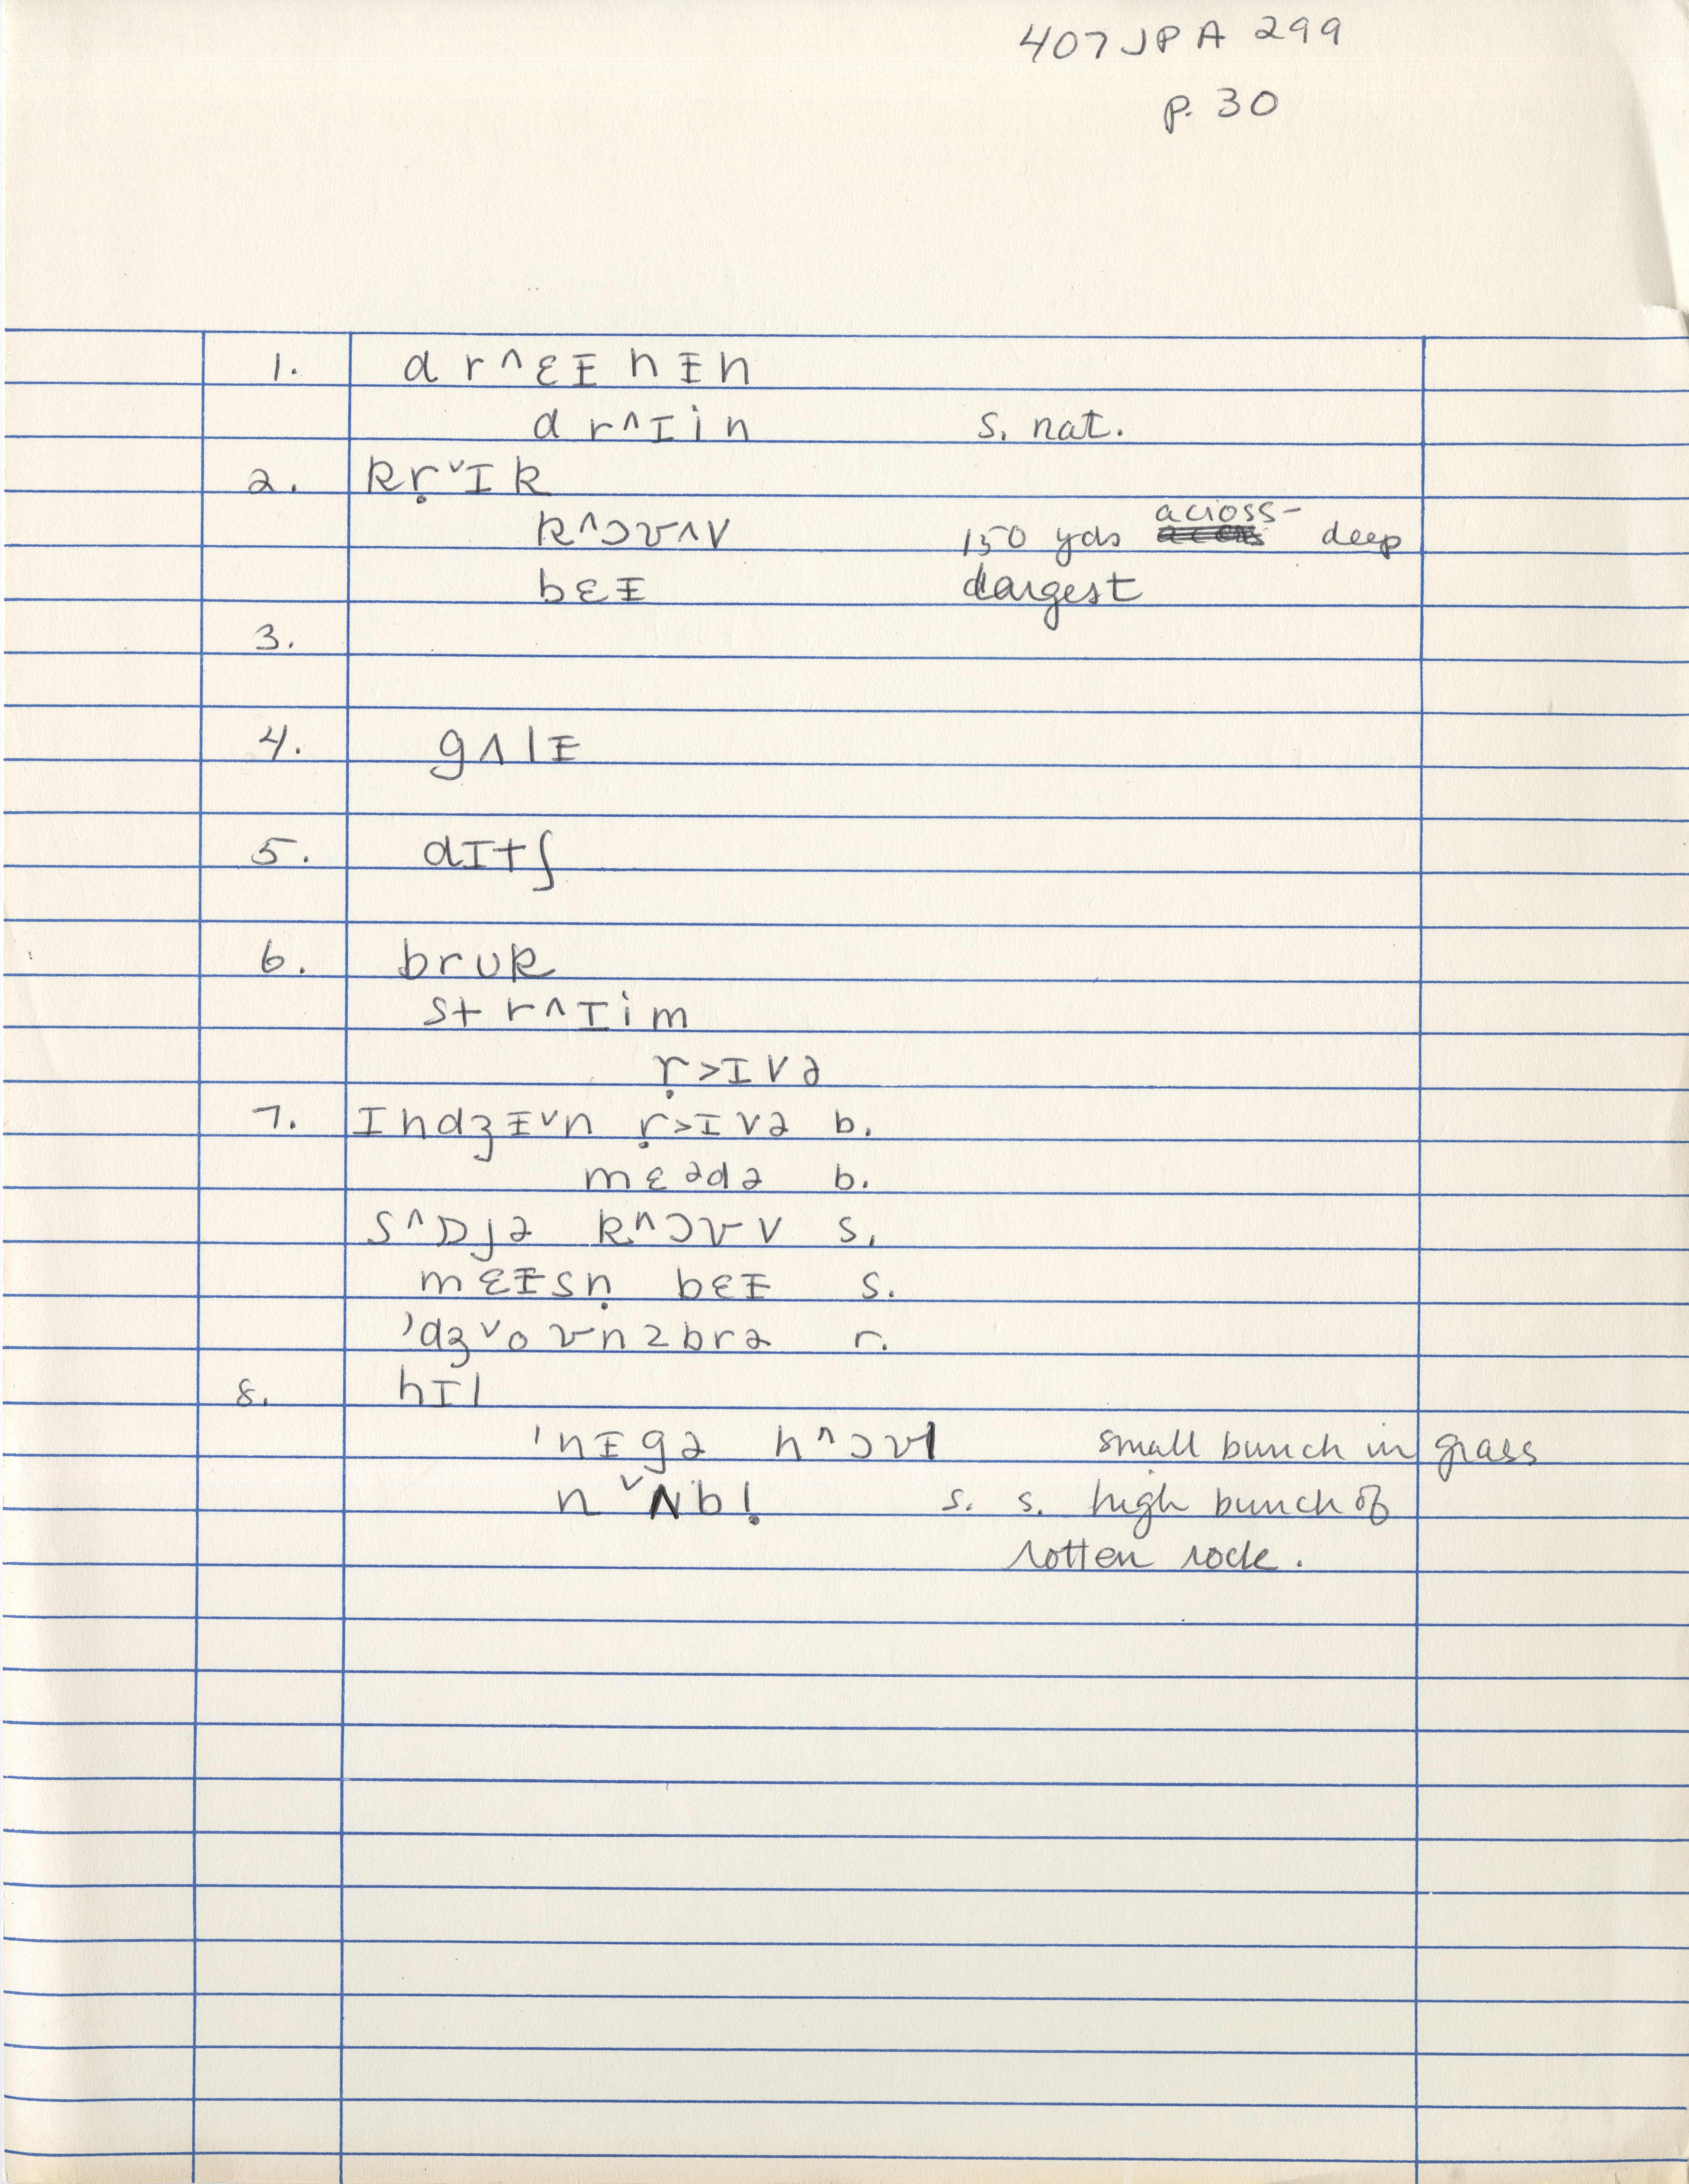 407 JPA 299
p. 30
1. d r ^ ɛ ᵻ n ᵻ n
d r ^ ɪ i n s. nat.
2. k ṛ ˅ ɪ k
k ^ ɔ ʊ ^ v 150 yds across - deep
b ɛ ᵻ largest
3.
4. g ʌ l ᵻ
5. d ɪ t ʃ
6. b r ʊ k
s t r ^ ɪ i m
ṛ > ɪ v ə
7. ɪ n d ʒ ᵻ ˅ n ṛ > ɪ v ə b.
m ɛ ə d ə b.
s ^ ɒ j ə k ^ ɔ ʊ v s.
m ɛ ᵻ s ṇ b ɛ ᵻ s.
'd ʒ ˅ o ʊ n z b r ə r.
8. h ɪ l
'n ᵻ g ə h ^ ɔ ʊ l small bunch in grass
n ˅ ʌ b ḷ s. s. high bunch of
rotten rock.